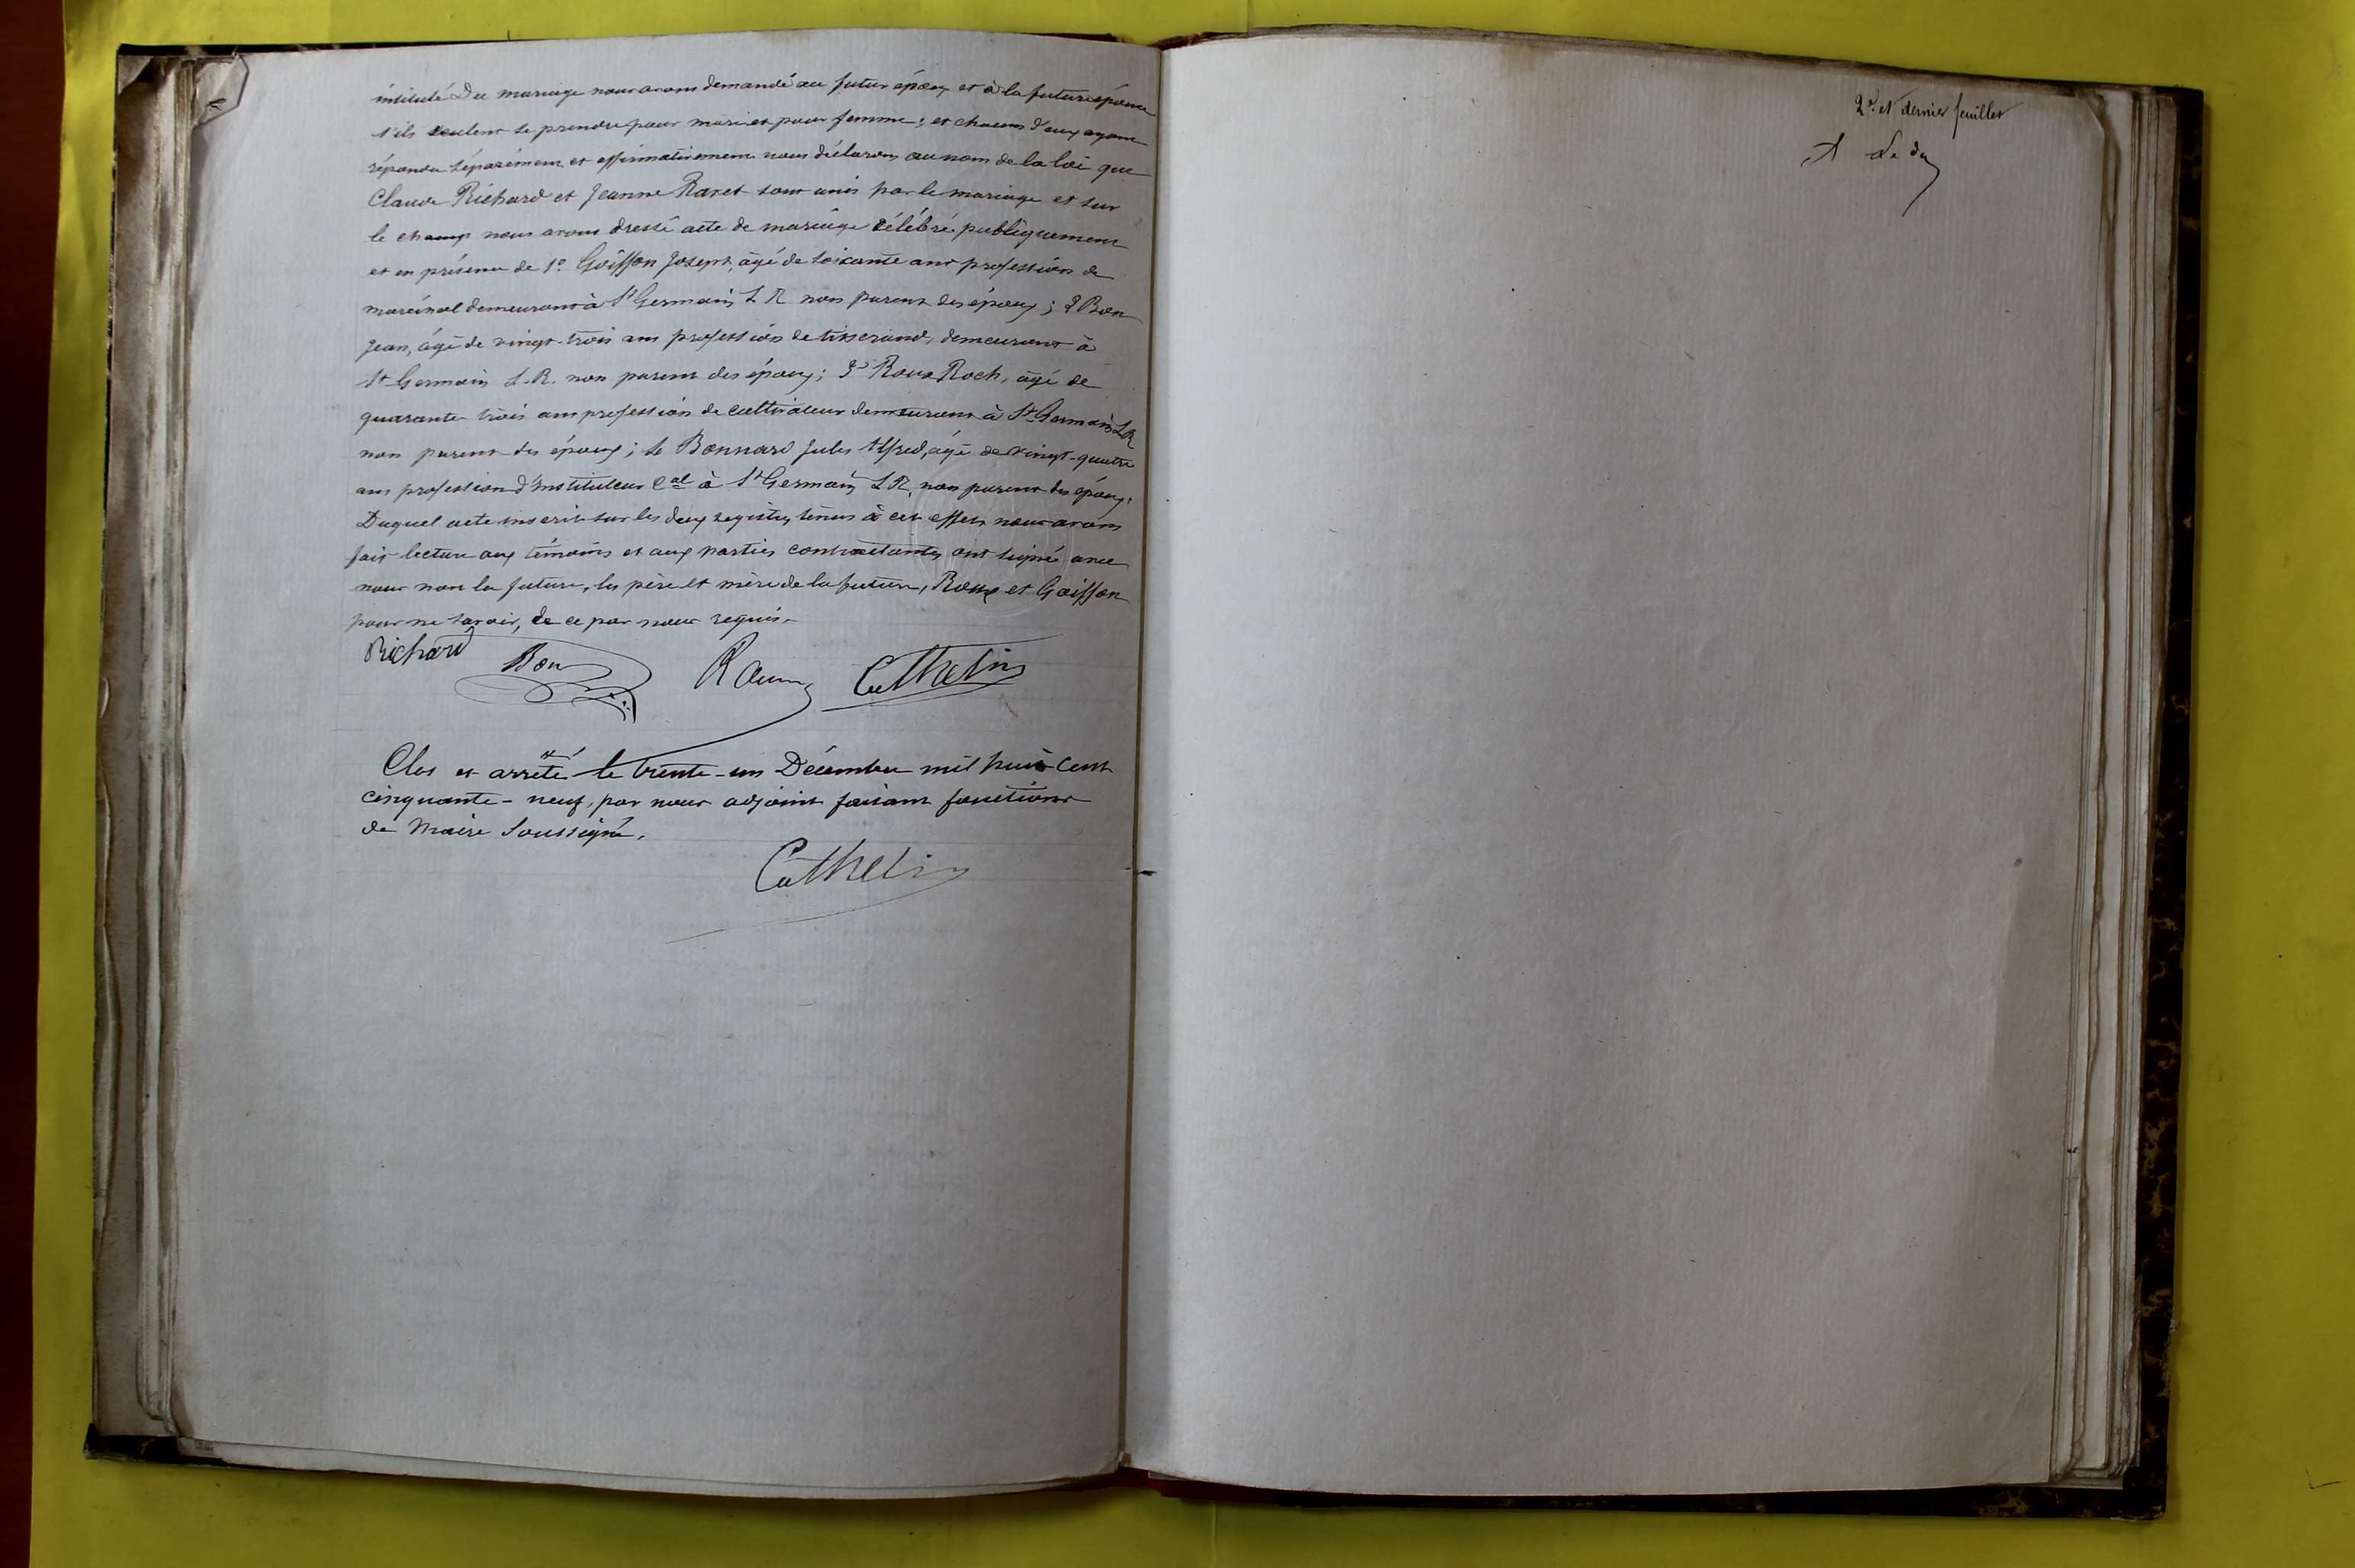 institulé Du mariage nous avons demandé au futur époux et à la future épouse
s'ils veulent se prendre pour mari et pour femme ; et chacun d'eux ayant
répondu séparément et affirmativement nous déclarons au nom de la loi que
Claude Richard et Jeanne Raret sont unis par le mariage et sur
le champ nous avons dressé acte de mariage célébré publiquement
et en présence de 1º Goiffon Joseph, âgé de soixante ans profession de
maréchal demeurant à St Germain L R non parent des époux ; 2 Bon
Jean, âgé de vingt-trois ans profession de tisserand, demeurant à
St Germain L.R. non parent des époux ; 3º Roux Roch, âgé de
quarante-trois ans profession de cultivateur demeurant à St Germain L R
non parent des époux ; 4e Bonnard Jules Alfred, âgé de vingt-quatre
ans profession d'Instituteur Cal à St Germain L R, non parent des époux.
Duquel acte inscrit sur les deux registres tenus à cet effet, nous avons
fait lecture aux témoins et aux parties contractantes ont signé avec
nous non la future, les père et mère de la future, Roux et Goiffon
pour ne savoir, de ce par nous requis.
Richard Bon Cathelin
Clos et arrêté le trente-un Décembre mil huit cent
cinquante-neuf, par nous adjoint faisant fonctions
de Maire soussigné.
Cathelin
2e et dernier feuillet